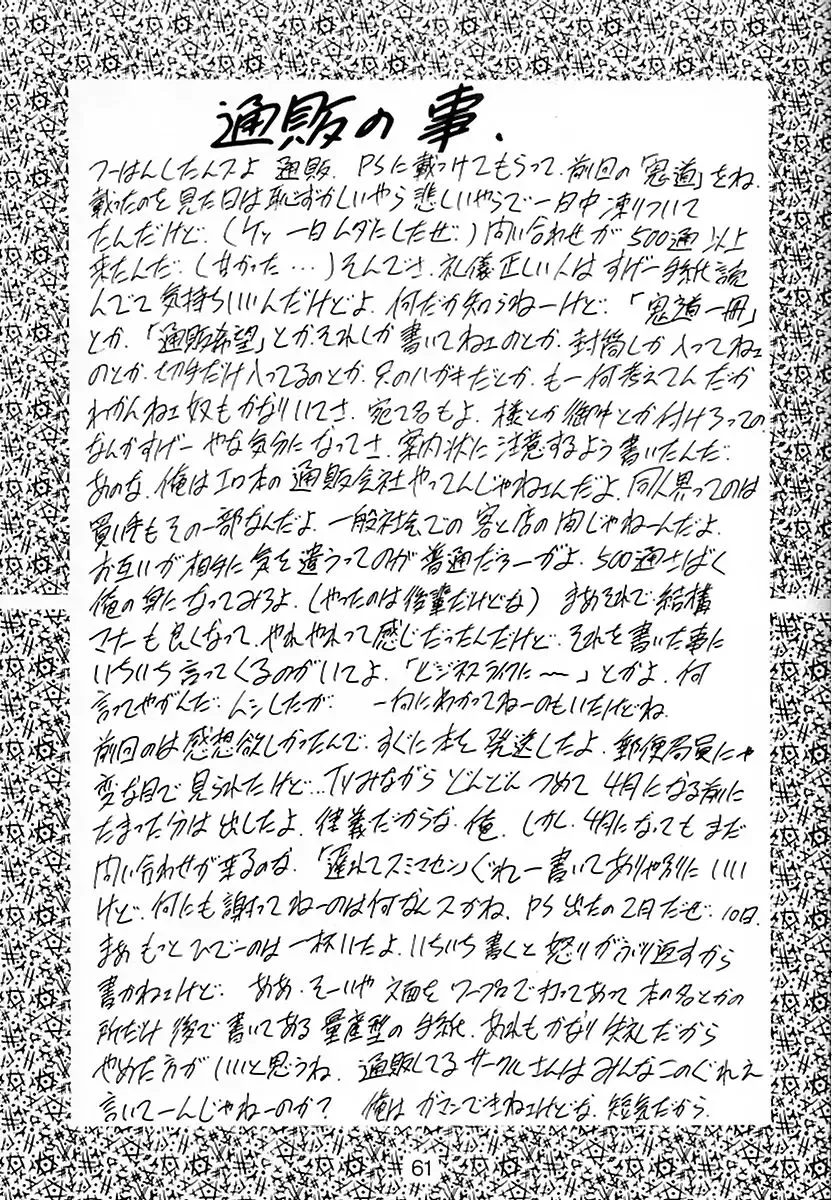 通販の事.
つーはんしたんスよ 通販. PSに載っけてもらって. 前回の「鬼道」をね.
載ったのを見た日は恥ずかしいやら悲しいやらで一日中凍りついて
たんだけど. (ケッ 一日ムダにしたぜ.) 問い合わせが500通以上
来たんだ. (甘かった…) そんでさ. 礼儀正しい人はすげー手紙読
んでて気持ちいいんだけどよ. 何だか知らねーけど. 「鬼道一冊」
とか. 「通販希望」とかそれしか書いてねェのとか. 封筒しか入ってねェ
のとか. 切手だけ入ってるのとか. 只のハガキだとか. もー何考えてんだか
わかんねェ奴もかなりいてさ. 宛て名もよ. 様とか御中とか付けろっての.
なんかすげー やな気分になってさ. 案内状に注意するよう書いたんだ.
あのな. 俺はエロ本の通販会社やってんじゃねェんだよ. 同人界ってのは
買い手もその一部なんだよ. 一般社会での客と店の間じゃねーんだよ.
お互いが相手に気を遣うってのが普通だろーがよ. 500通さばく
俺の身になってみろよ. (やったのは後輩だけどな) まあそれで結構
マナーも良くなって. やれやれって感じだったんだけど. それを書いた事に
いちいち言ってくるのがいてよ. 「ビジネスライクに〜」とかよ. 何
言ってやがんだ. ムシしたが. 一向にわかってねーのもいたけどね.
前回のは感想欲しかったんで. すぐに本を発送したよ. 郵便局員にゃ
変な目で見られたけど… TVみながら どんどん つめて 4月になる前に
たまった分は出したよ. 律義だからな. 俺. しかし. 4月になってもまだ
問い合わせが来るのな. 「遅れてスミマセン」ぐれー書いてありゃ別にいい
けど. 何にも謝ってねーのは何なんスかね. PS出たの2月だぜ. 10日.
まあ もっとひでーのは一杯いたよ. いちいち書くと怒りがぶり返すから
書かねェけど. ああ. そーいや 文面をワープロで打ってあって 本の名とかの
所だけ 後で書いてある量産型の手紙. あれもかなり失礼だから
やめた方がいいと思うね. 通販してるサークルさんはみんなこのぐれえ
言いてーんじゃねーのか? 俺はガマンできねェけどな. 短気だから.
61